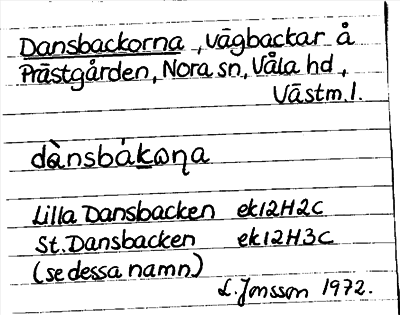 Dansbackorna, vägbackar å
Prästgården, Nora sn, Våla hd,
Västm. l.
dànsbákoṇa
Lilla Dansbacken ek12H2c
St. Dansbacken ek12H3c
(se dessa namn)
L. Jonsson 1972.